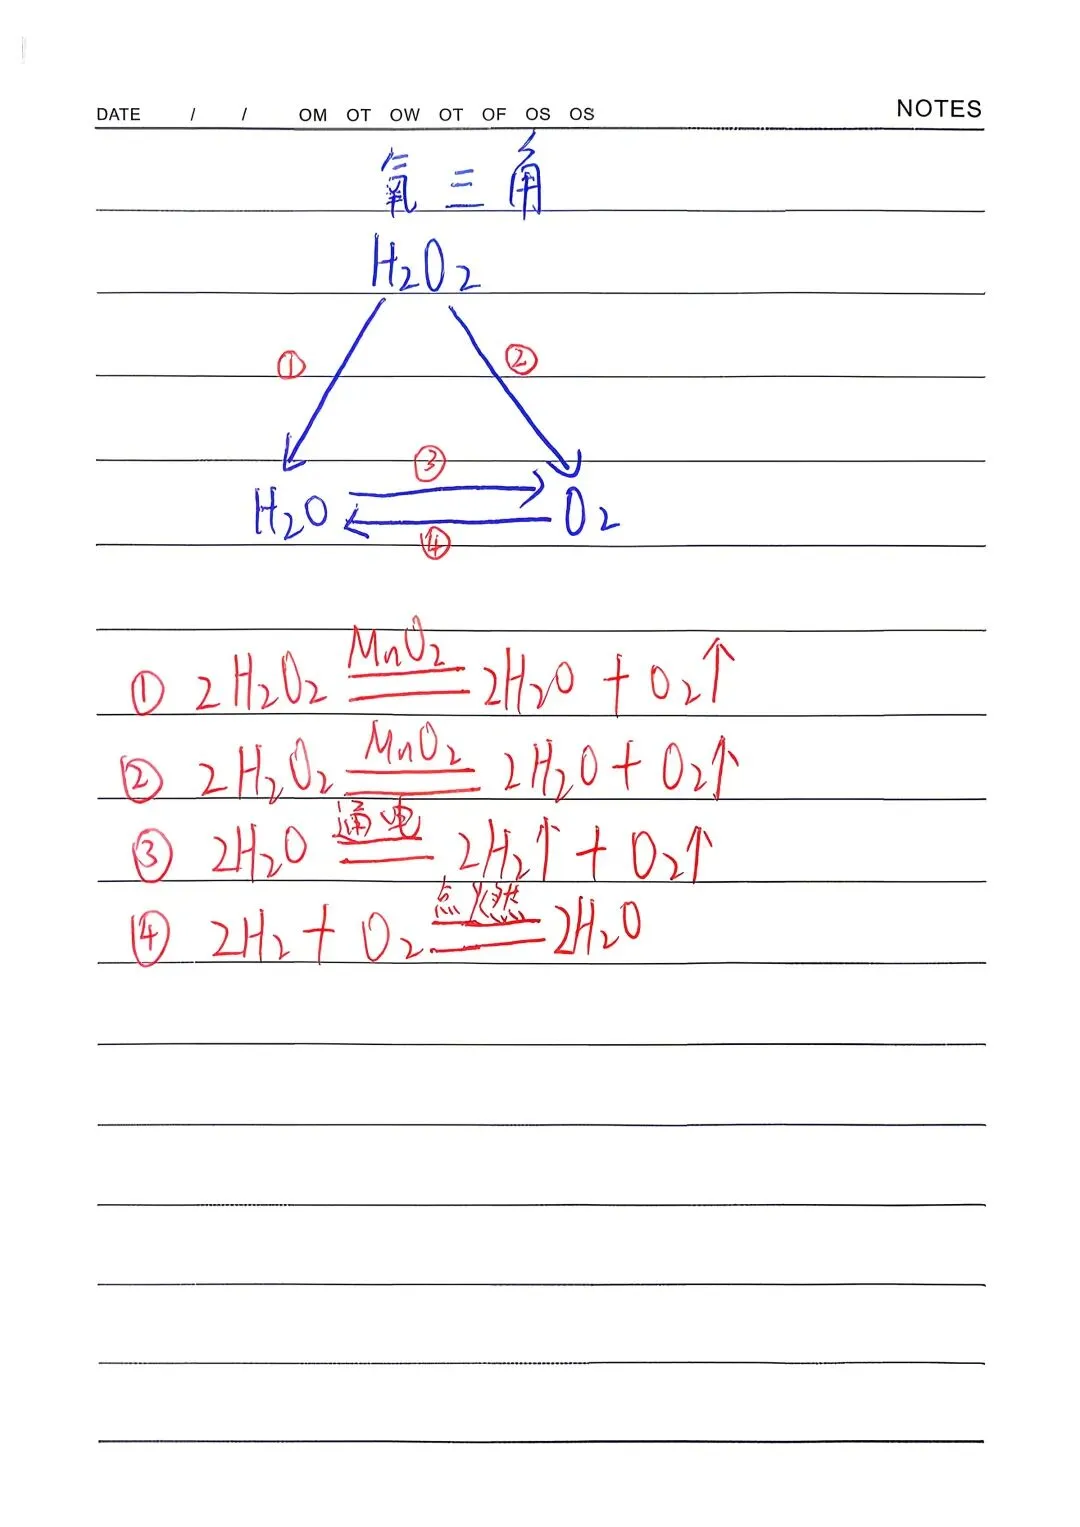 DATE / / OM OT OW OT OF OS OS NOTES
氧三角
H₂O₂
① ②
③
H₂O O₂
④
① 2H₂O₂ MnO₂ 2H₂O + O₂↑
② 2H₂O₂ MnO₂ 2H₂O + O₂↑
③ 2H₂O 通电 2H₂↑ + O₂↑
④ 2H₂ + O₂ 点燃 2H₂O